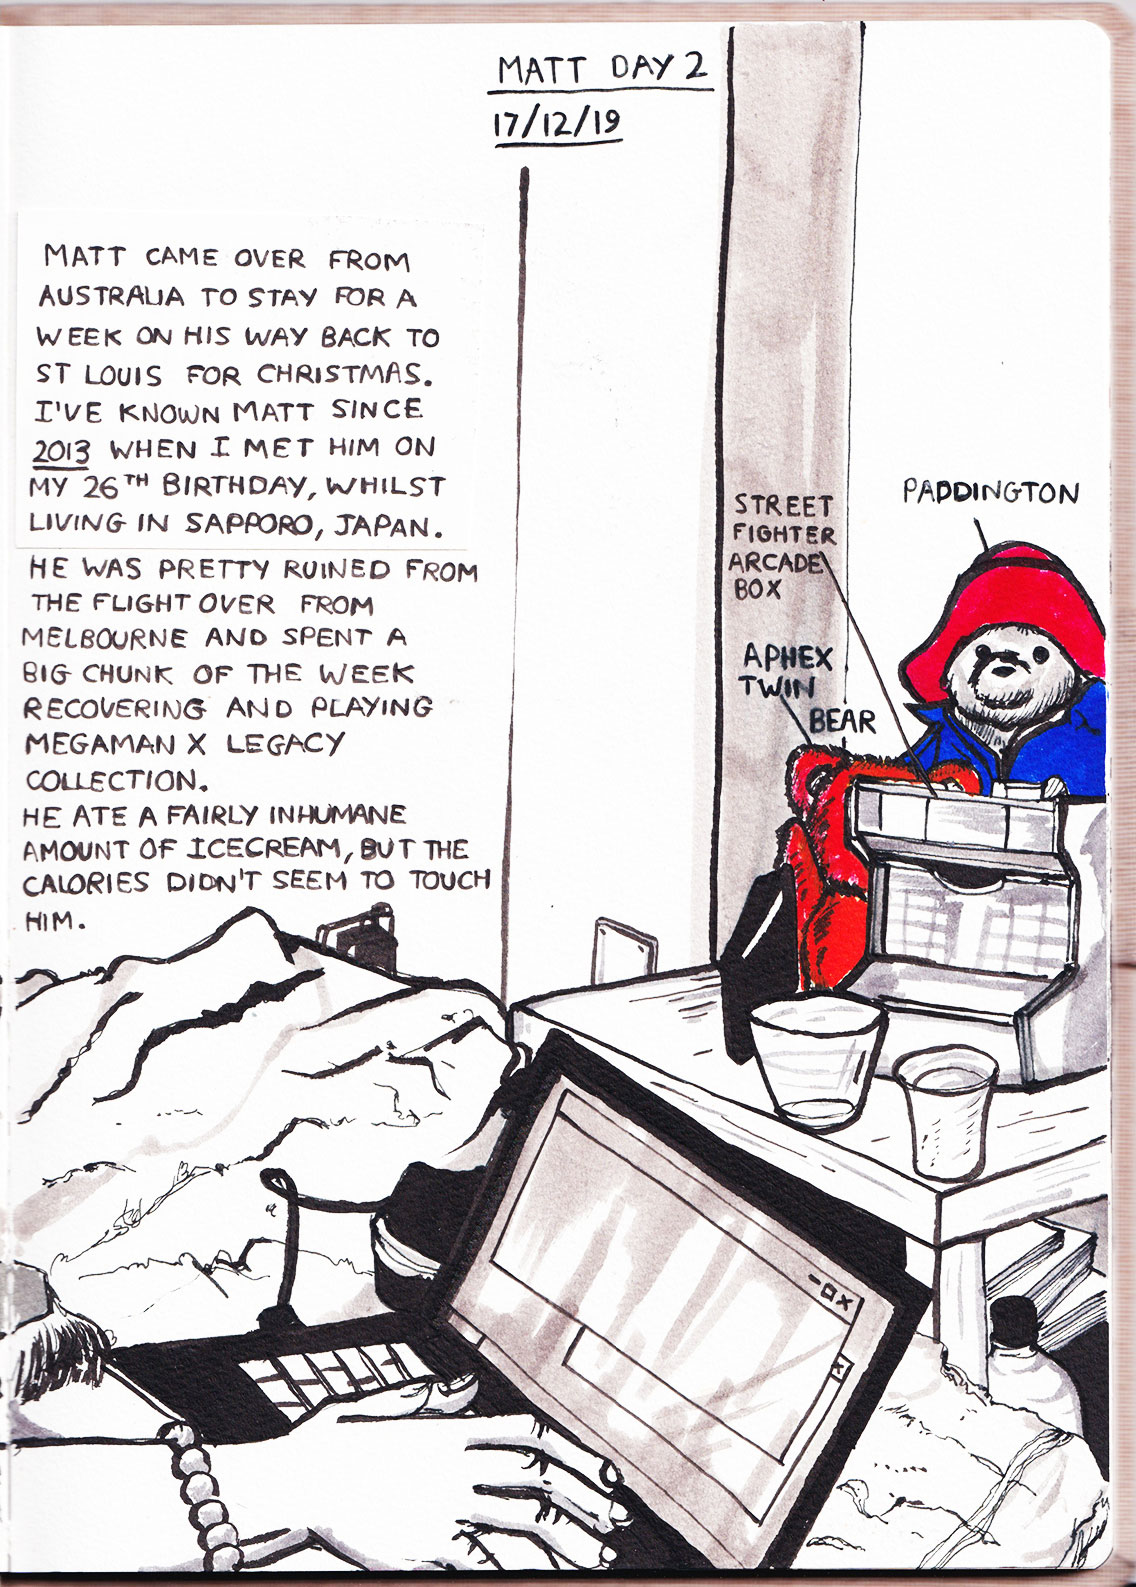 MATT DAY 2
17/12/19
MATT CAME OVER FROM
AUSTRALIA TO STAY FOR A
WEEK ON HIS WAY BACK TO
ST LOUIS FOR CHRISTMAS.
I'VE KNOWN MATT SINCE
2013 WHEN I MET HIM ON
MY 26TH BIRTHDAY, WHILST
LIVING IN SAPPORO, JAPAN.
HE WAS PRETTY RUINED FROM
THE FLIGHT OVER FROM
MELBOURNE AND SPENT A
BIG CHUNK OF THE WEEK
RECOVERING AND PLAYING
MEGAMAN X LEGACY
COLLECTION.
HE ATE A FAIRLY INHUMANE
AMOUNT OF ICECREAM, BUT THE
CALORIES DIDN'T SEEM TO TOUCH
HIM.
STREET
FIGHTER
ARCADE
BOX
PADDINGTON
APHEX
TWIN
BEAR